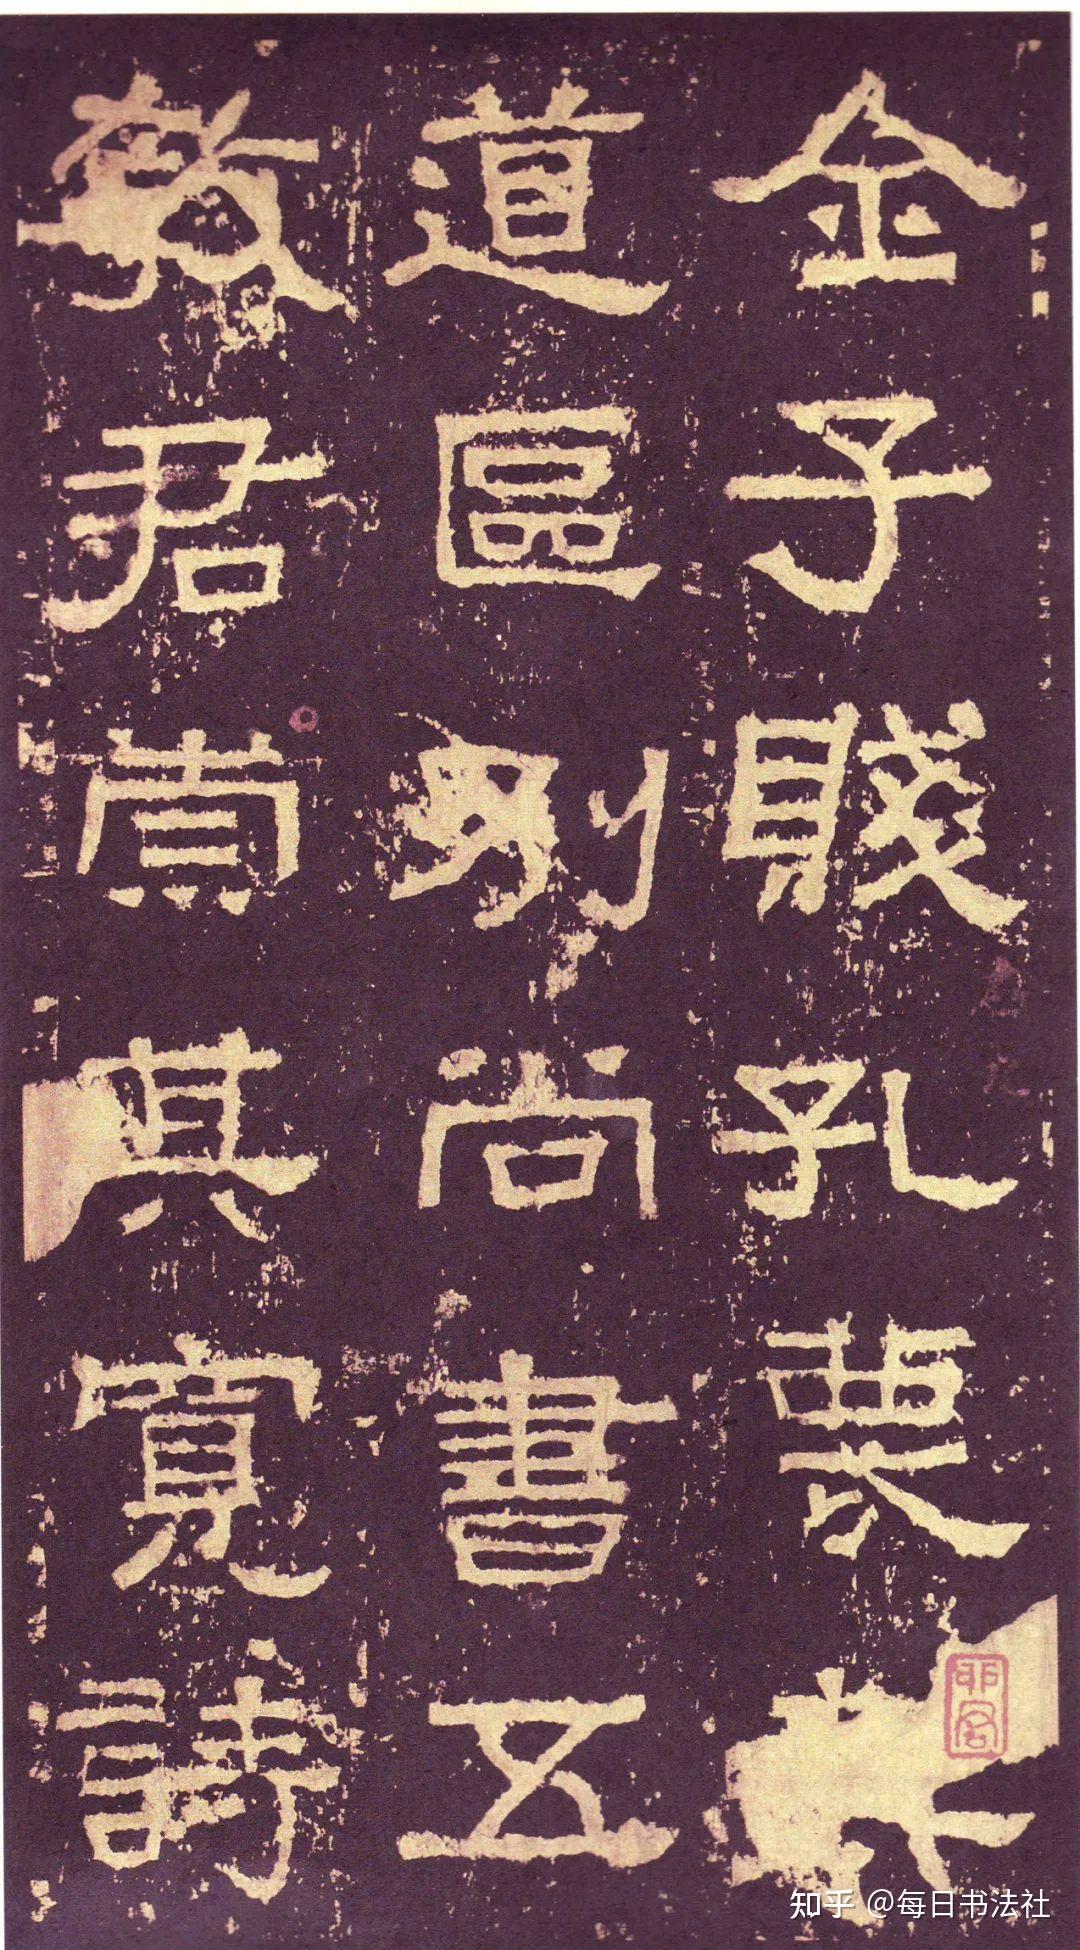 全子賤孔蔑
道區別尚書五
教君崇其寬詩
知乎 @每日书法社